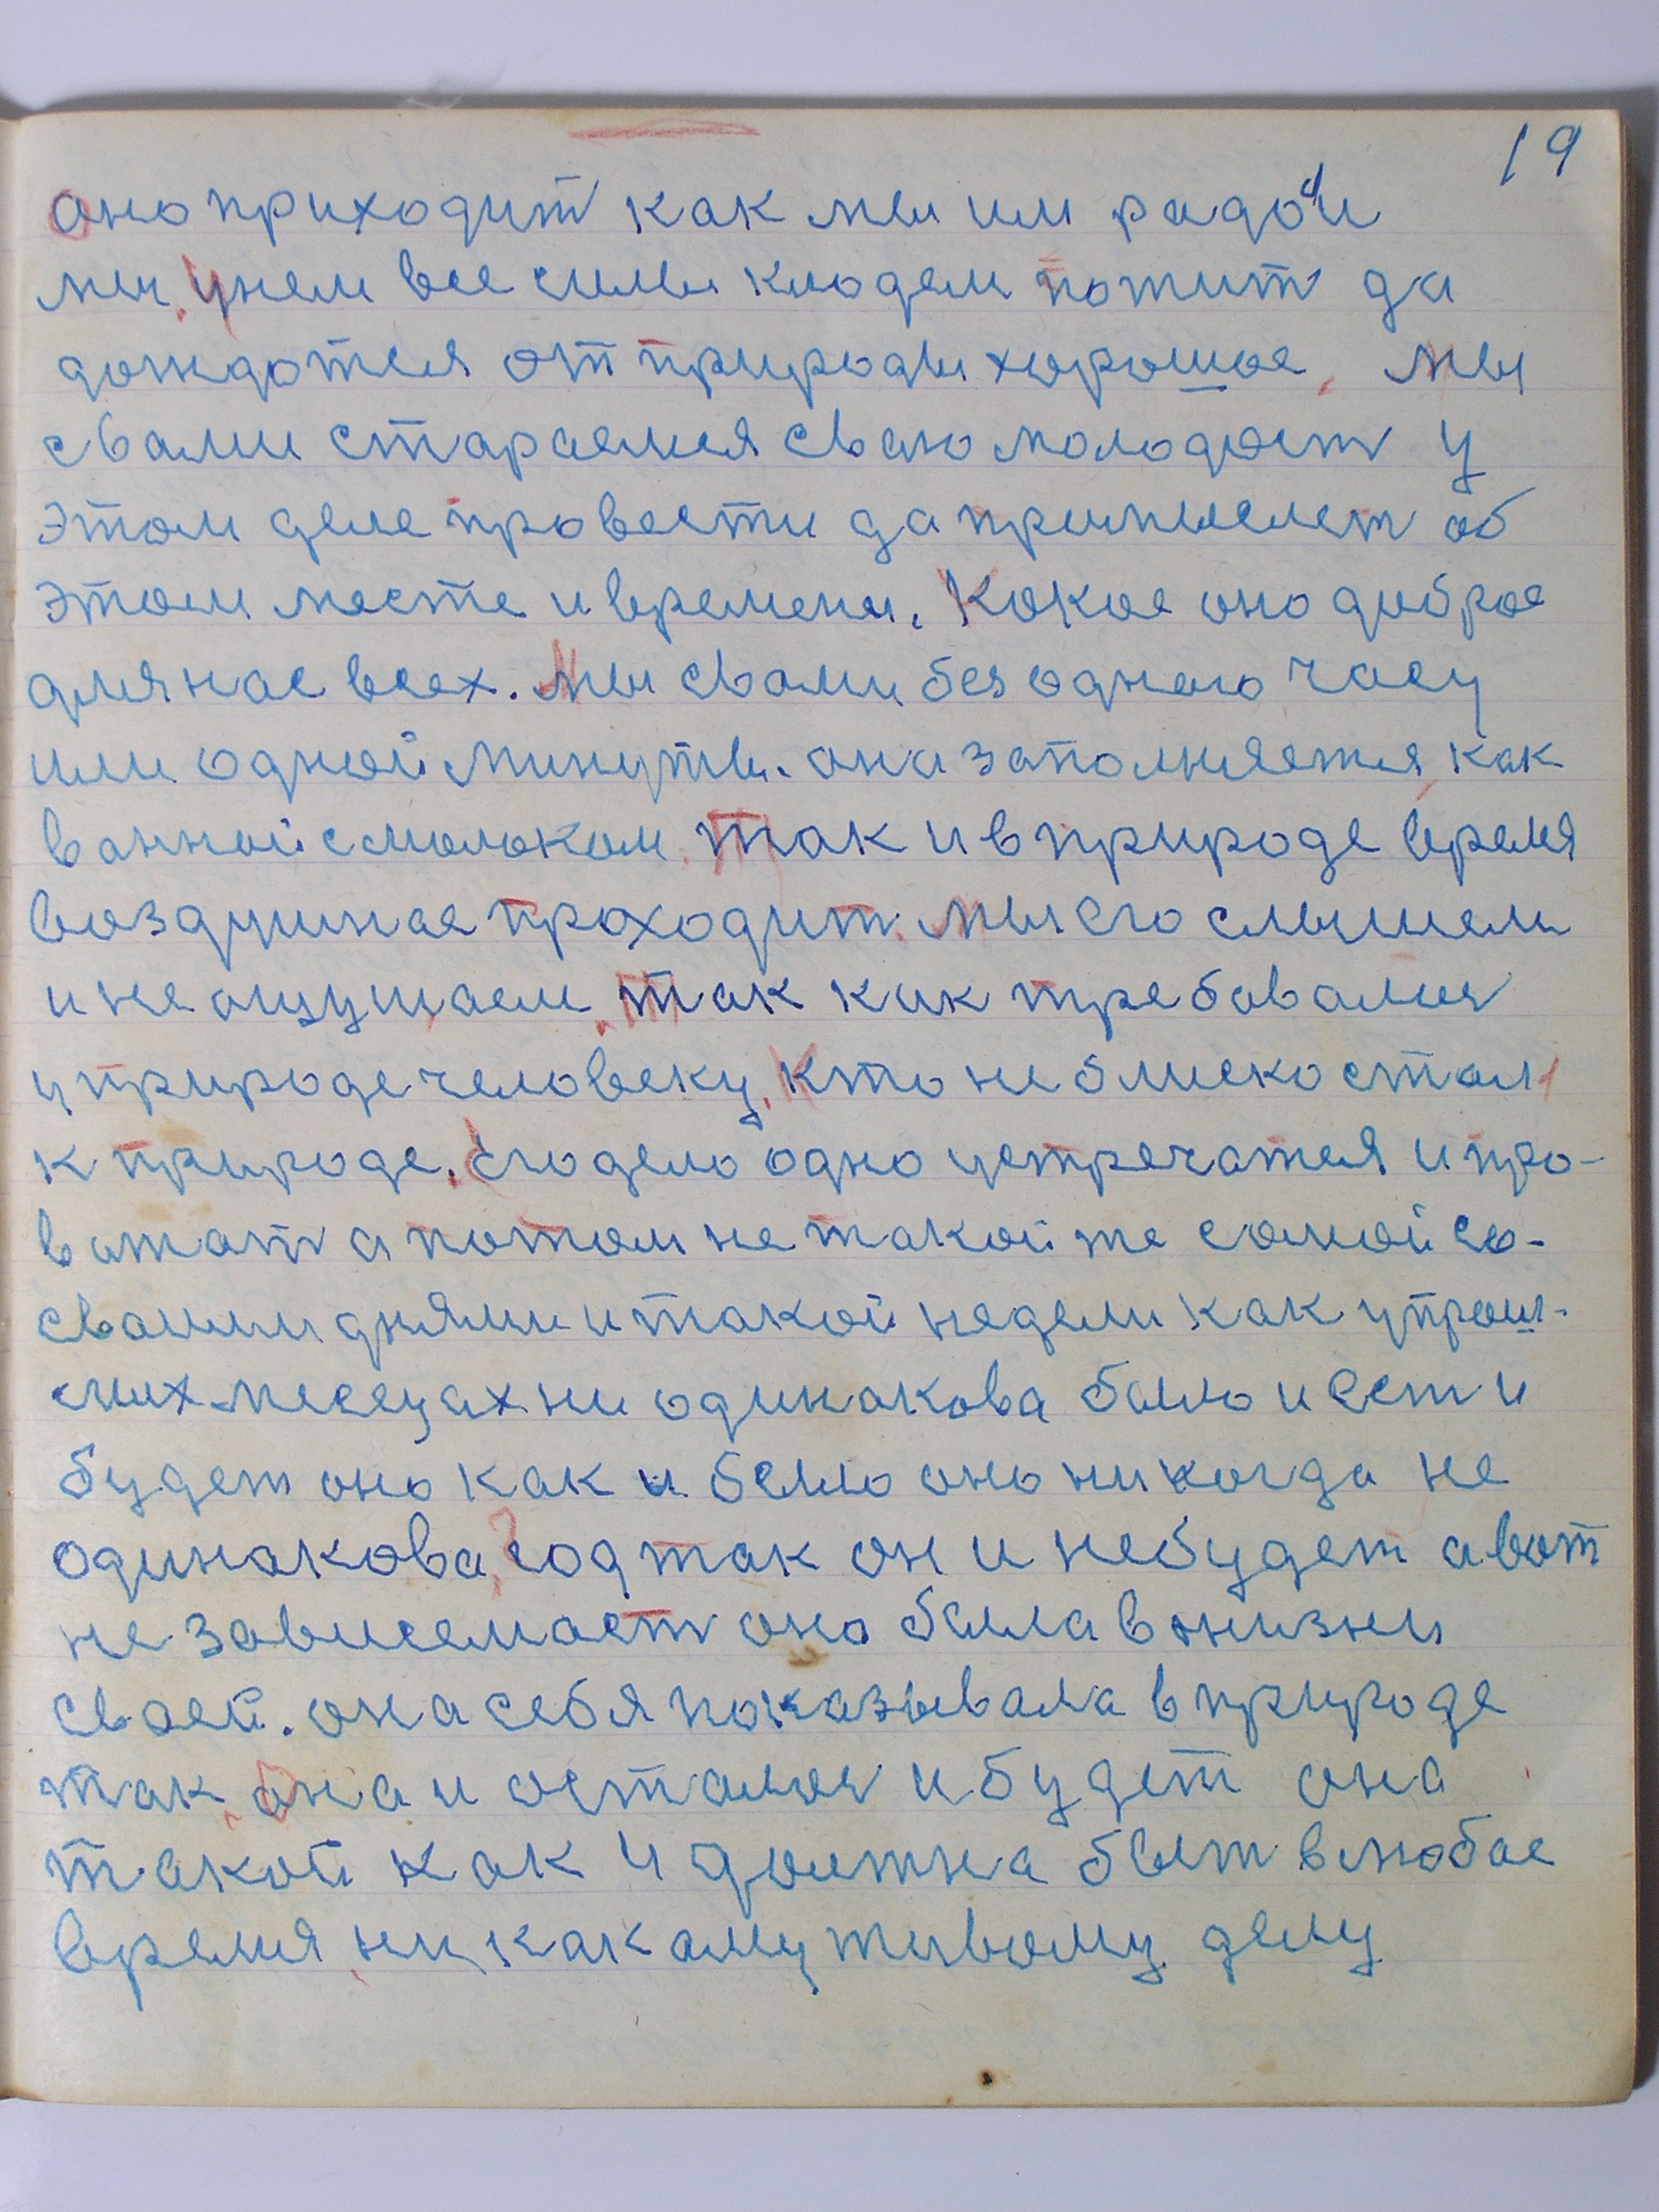 19
оно приходит как мы им радои
мы унем все силы кладем пожит да
дождатся от природы хорошое. мы
свами стараемся сваю молодост у
этом деле провести да припмслет об
этом месте и времени. Кокое оно доброе
для нас всех. Мы свами без одного часу
или одной минуты. она заполняется как
ванной смолоком. Так и в природе время
воздушное проходит. Мы его слышем
и не ощущаем. Так как требовалися
у природе человеку. Кто не блиско стал
к природе. Его дело одно устречатся и про-
вожат а потом не такой же самой со-
сваими днями и такой недели как у прош-
лих месецах ни одинакова было и ест и
будет оно как и было оно никогда не
одинакова. Год так он и небудет а вот
не зависемаст она была в жизни
своей. она себя показывала в природе
так. Она и осталася и будет она
такой как и должна быт в любое
время никакому живому делу